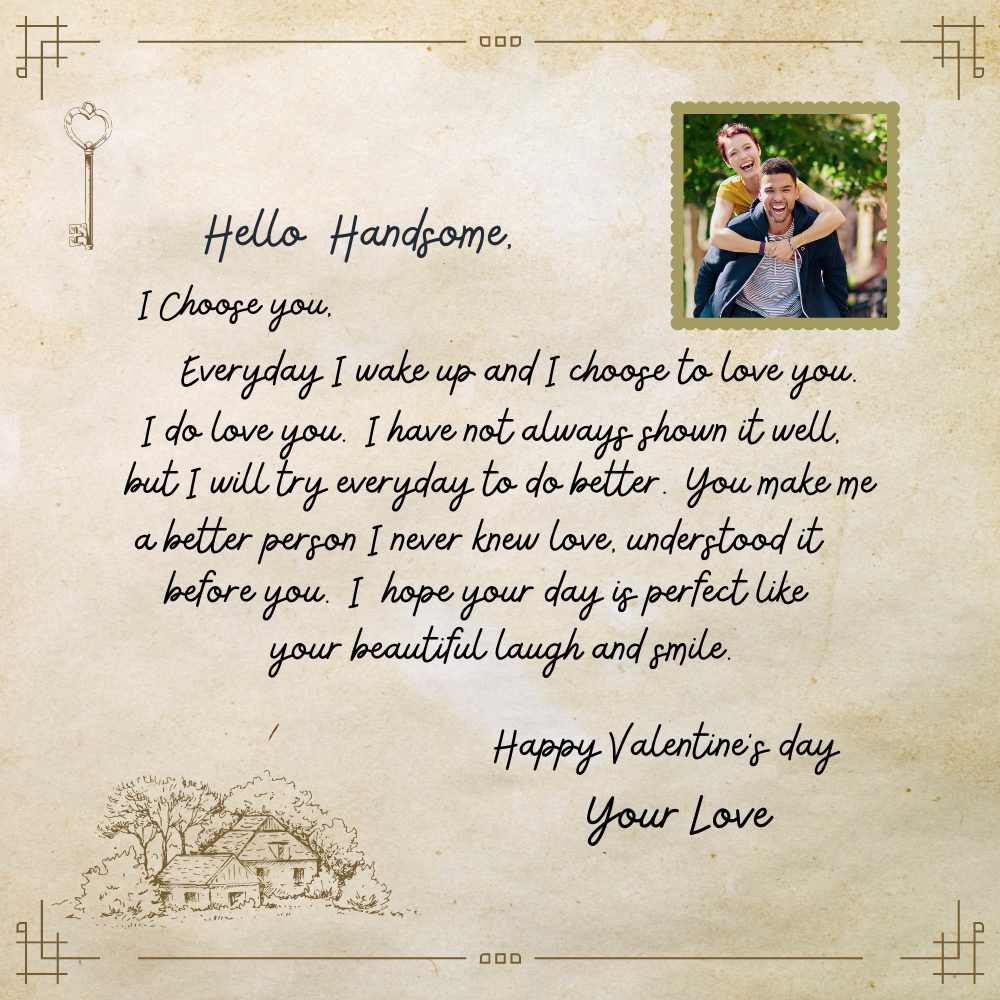 Hello Handsome,
I Choose you,
Everyday I wake up and I choose to love you.
I do love you. I have not always shown it well,
but I will try everyday to do better. You make me
a better person I never knew love, understood it
before you. I hope your day is perfect like
your beautiful laugh and smile.
Happy Valentine's day
Your Love